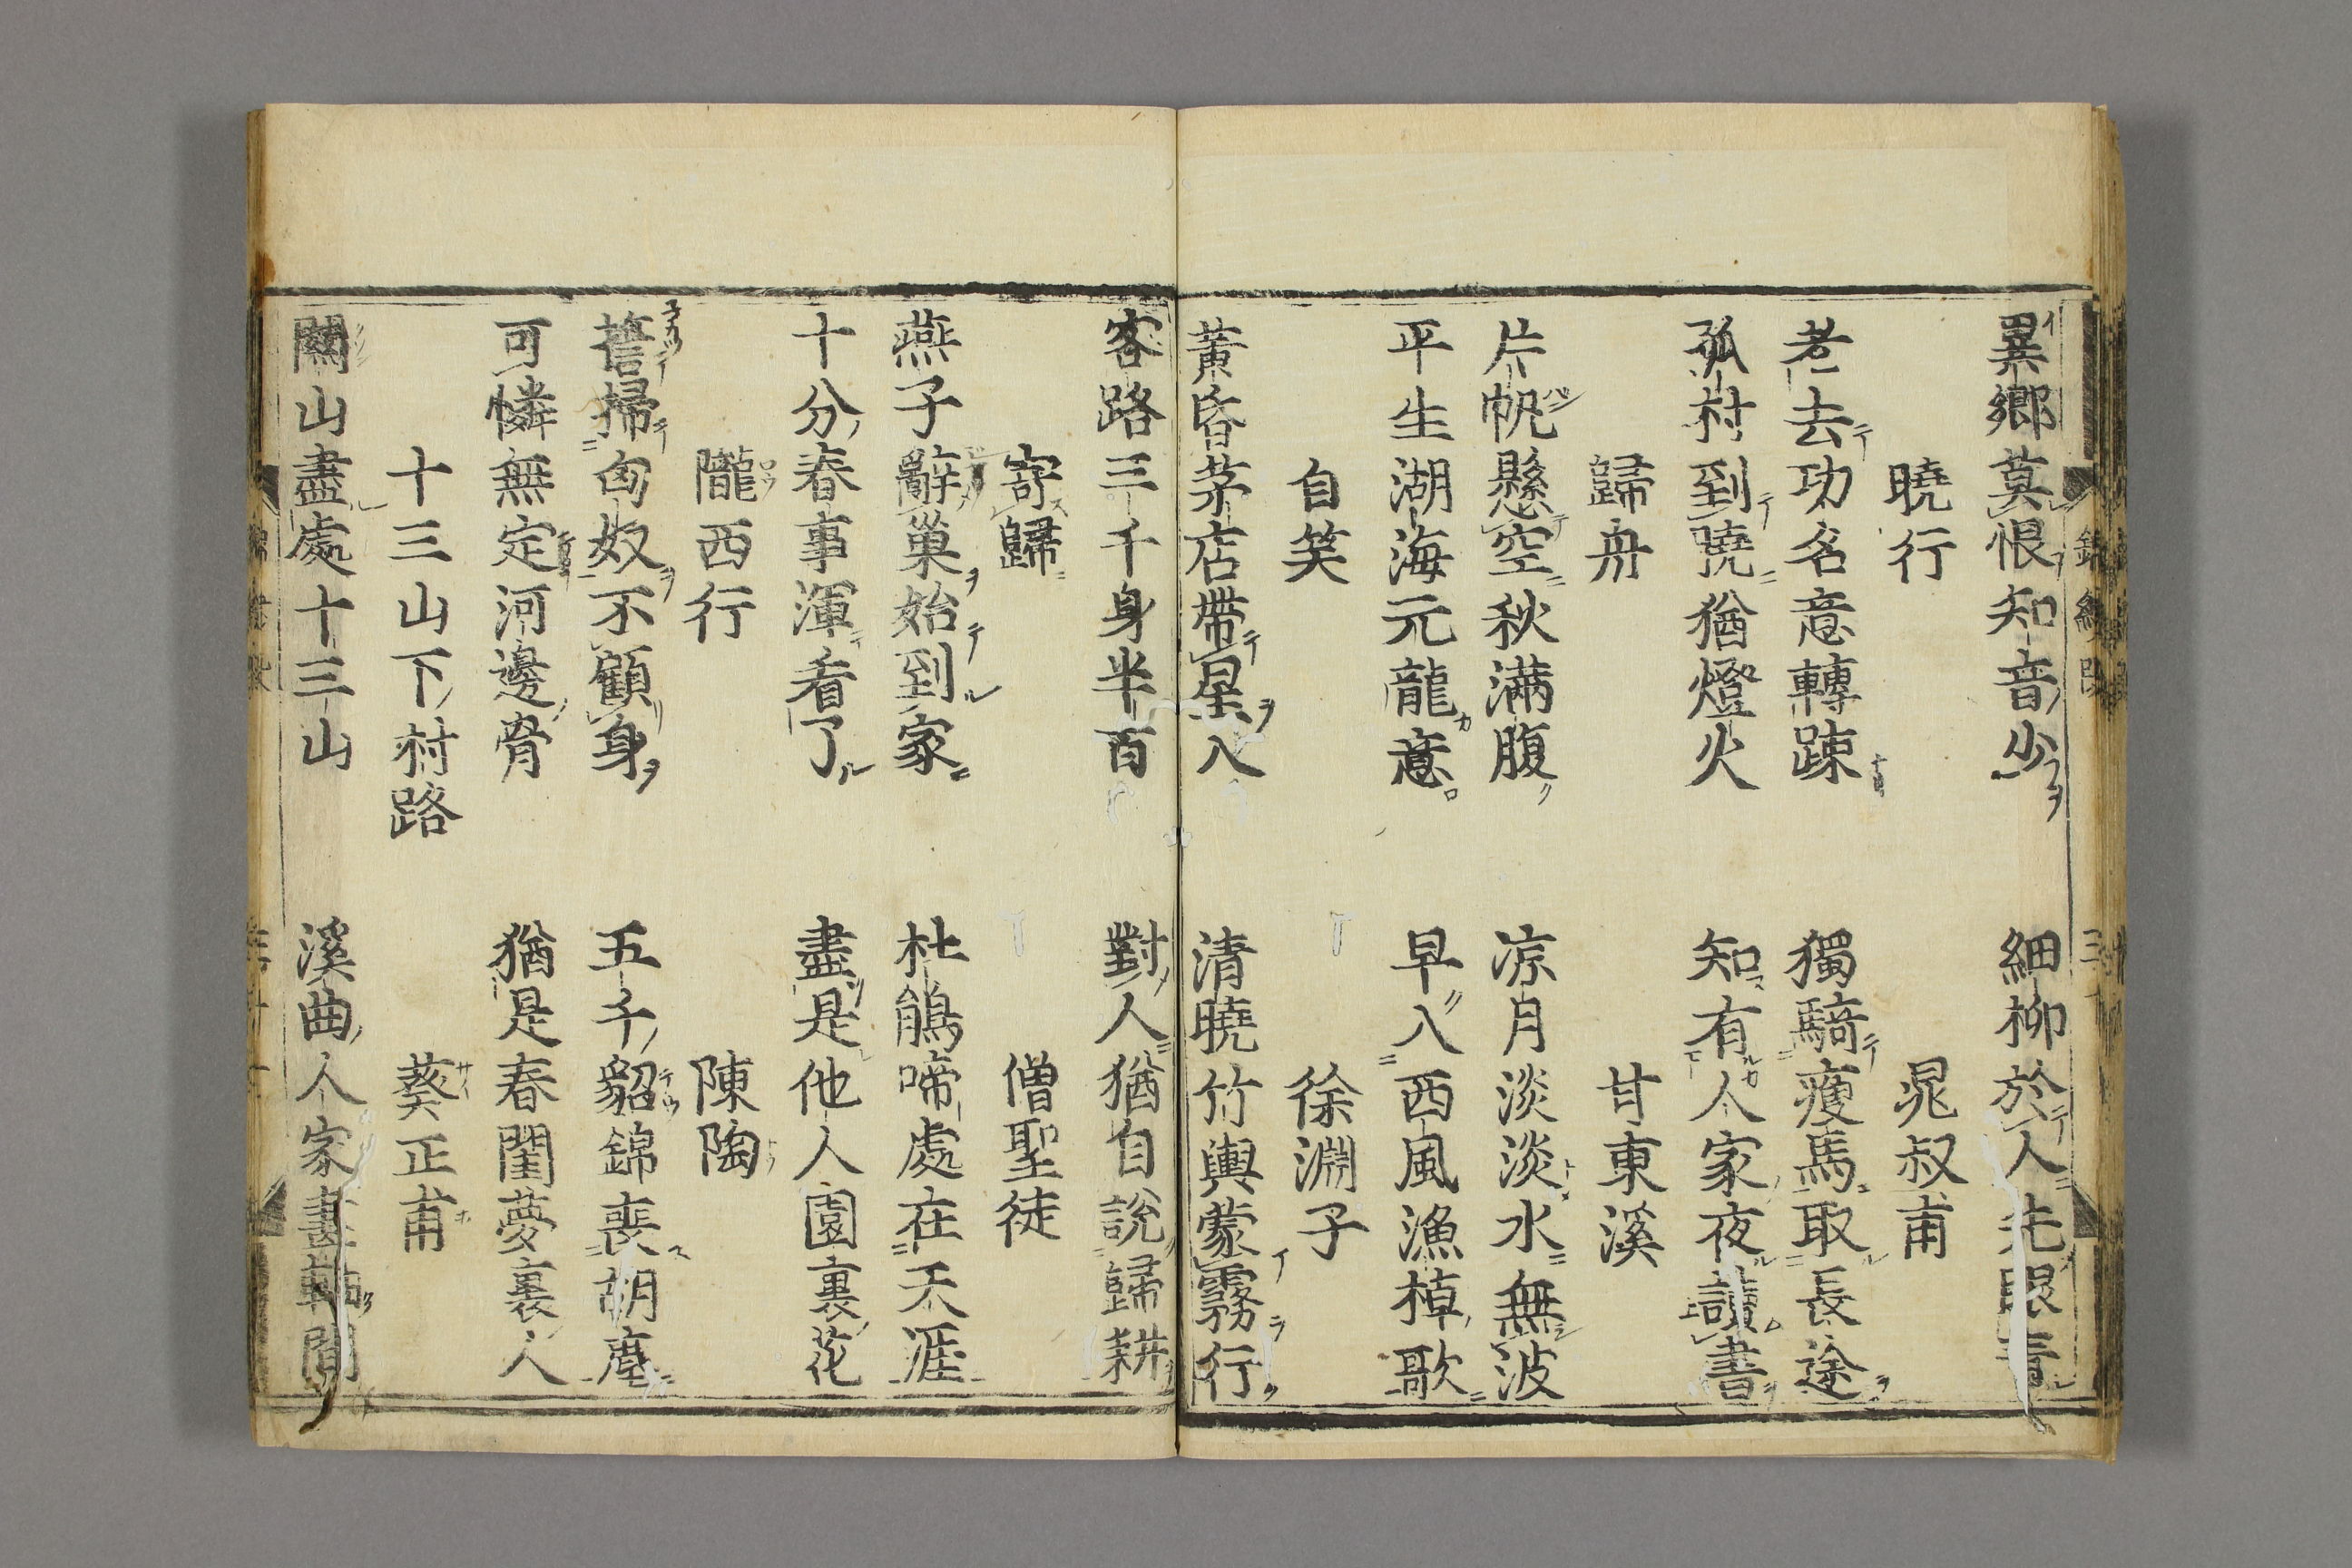 異鄉莫恨知音少　細柳於人先眼青
曉行　晁叔甫
老去功名意轉踈　獨騎瘦馬取長途
孤村到曉猶燈火　知有人家夜讀書
歸舟　甘東溪
片帆懸空秋滿腹　凉月淡淡水無波
平生湖海元龍意　早入西風漁棹歌
自笑　徐淵子
黃昏茅店帶星入　清曉竹輿蒙霧行
客路三千身半百　對人猶自說歸耕
寄歸　僧聖徒
燕子辭巢始到家　杜鵑啼處在天涯
十分春事渾看了　盡是他人園裏花
隴西行　陳陶
誓掃匈奴不顧身　五千貂錦喪胡塵
可憐無定河邊骨　猶是春閨夢裏人
十三山下村路　蔡正甫
閑山盡處十三山　溪曲人家畫軸間